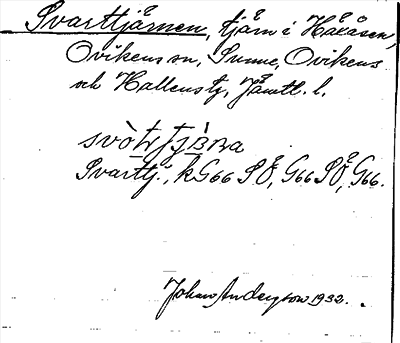 Svarttjärnen, tjärn i Håkåsen,
Ovikens sn, Sunne, Ovikens
och Hallens tg, Jämtl. l.
Svarttj., k G66 SÖ, G66 SÖ, G66.
Johan Anderson 1932.